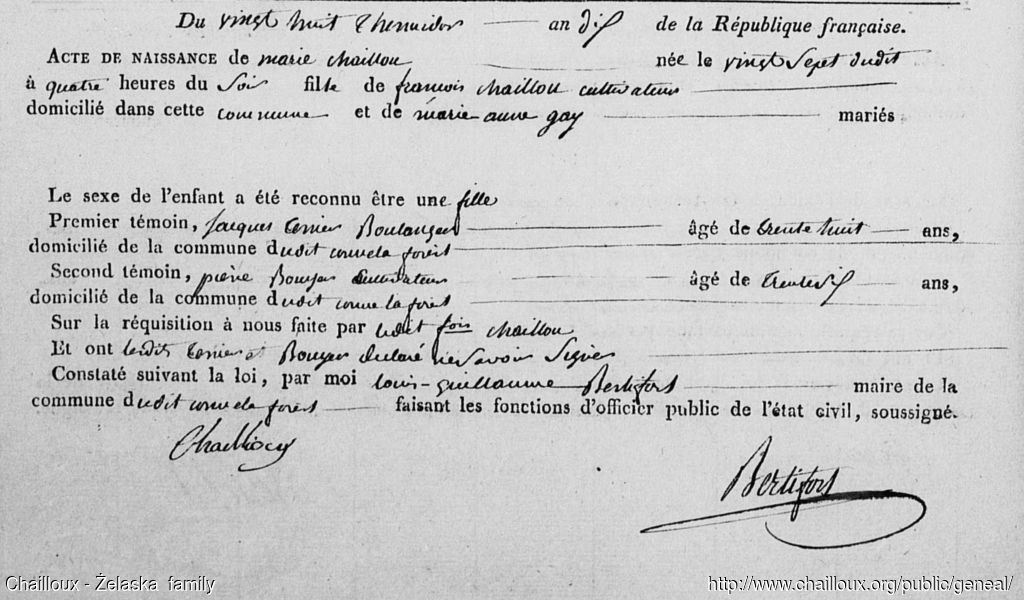 Du vingt huit thermidor an dix de la République française.
ACTE DE NAISSANCE de marie chaillou née le vingt Sept dudit
à quatre heures du Soir fille de francois chaillou cultivateur
domicilié dans cette commune et de marie anne gay mariés
Le sexe de l'enfant a été reconnu être une fille
Premier témoin, Jacques Boulanger âgé de trente huit ans,
domicilié de la commune dudit
Second témoin, pierre cultivateur âgé de ans,
domicilié de la commune dudit
Sur la réquisition à nous faite par ledit fois chaillou
Et ont lesdits et declaré ne Savoir Signer
Constaté suivant la loi, par moi louis-guillaume Bertifort maire de la
commune dudit faisant les fonctions d'officier public de l'état civil, soussigné.
Bertifort
Chailloux - Želaska family
http://www.chailloux.org/public/geneal/